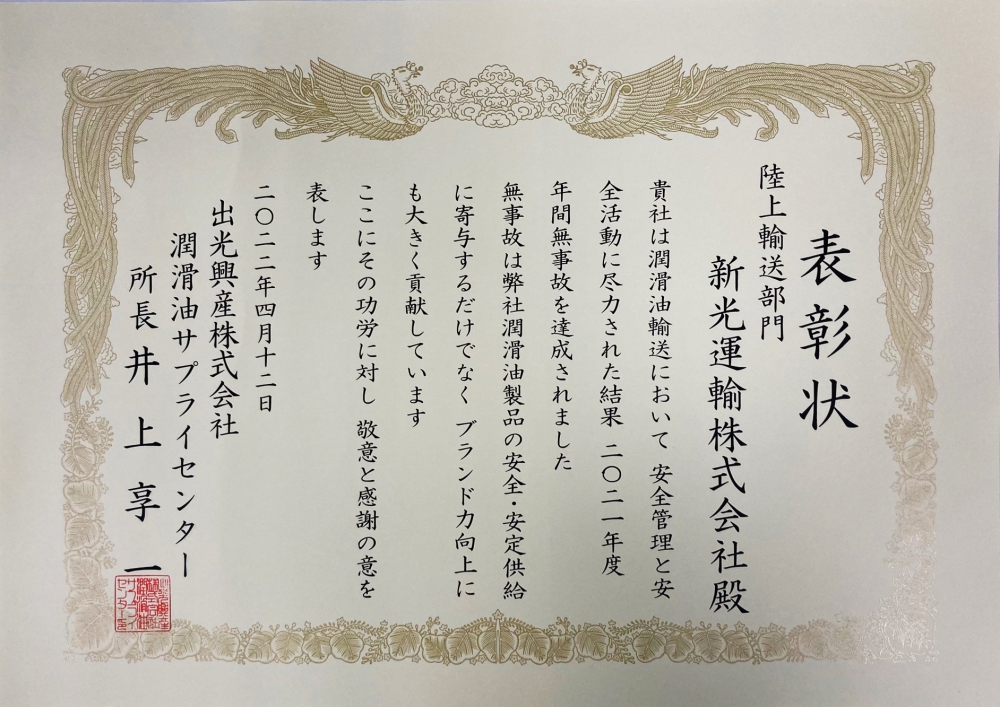 表彰状
陸上輸送部門
新光運輸株式会社殿
貴社は潤滑油輸送において 安全管理と安
全活動に尽力された結果 二〇二一年度
年間無事故を達成されました
無事故は弊社潤滑油製品の安全・安定供給
に寄与するだけでなく ブランド力向上に
も大きく貢献しています
ここにその功労に対し 敬意と感謝の意を
表します
二〇二二年四月十二日
出光興産株式会社
潤滑油サプライセンター
所長 井上享一
出光興産
株式会社
潤滑油
サプライ
センター